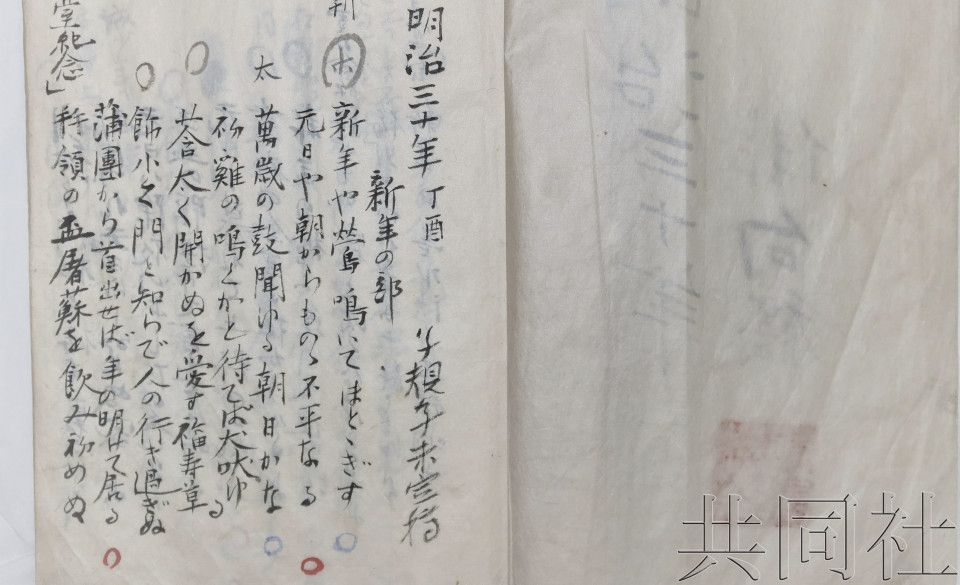 明治三十年 丁酉 子規子未定稿
新年の部
新年や鶯鳴いてほとゝぎす
元日や朝からものゝ不平なる
太
萬歳の鼓聞ゆる朝日かな
初雞の鳴くかと待てば犬吠ゆる
莟太く開かぬを愛す福寿草
飾小く門と知らで人の行き過ぎぬ
蒲團から首出せば年の明けて居る
拝領の盃屠蘇を飲み初めぬ
堂紀念」
共同社